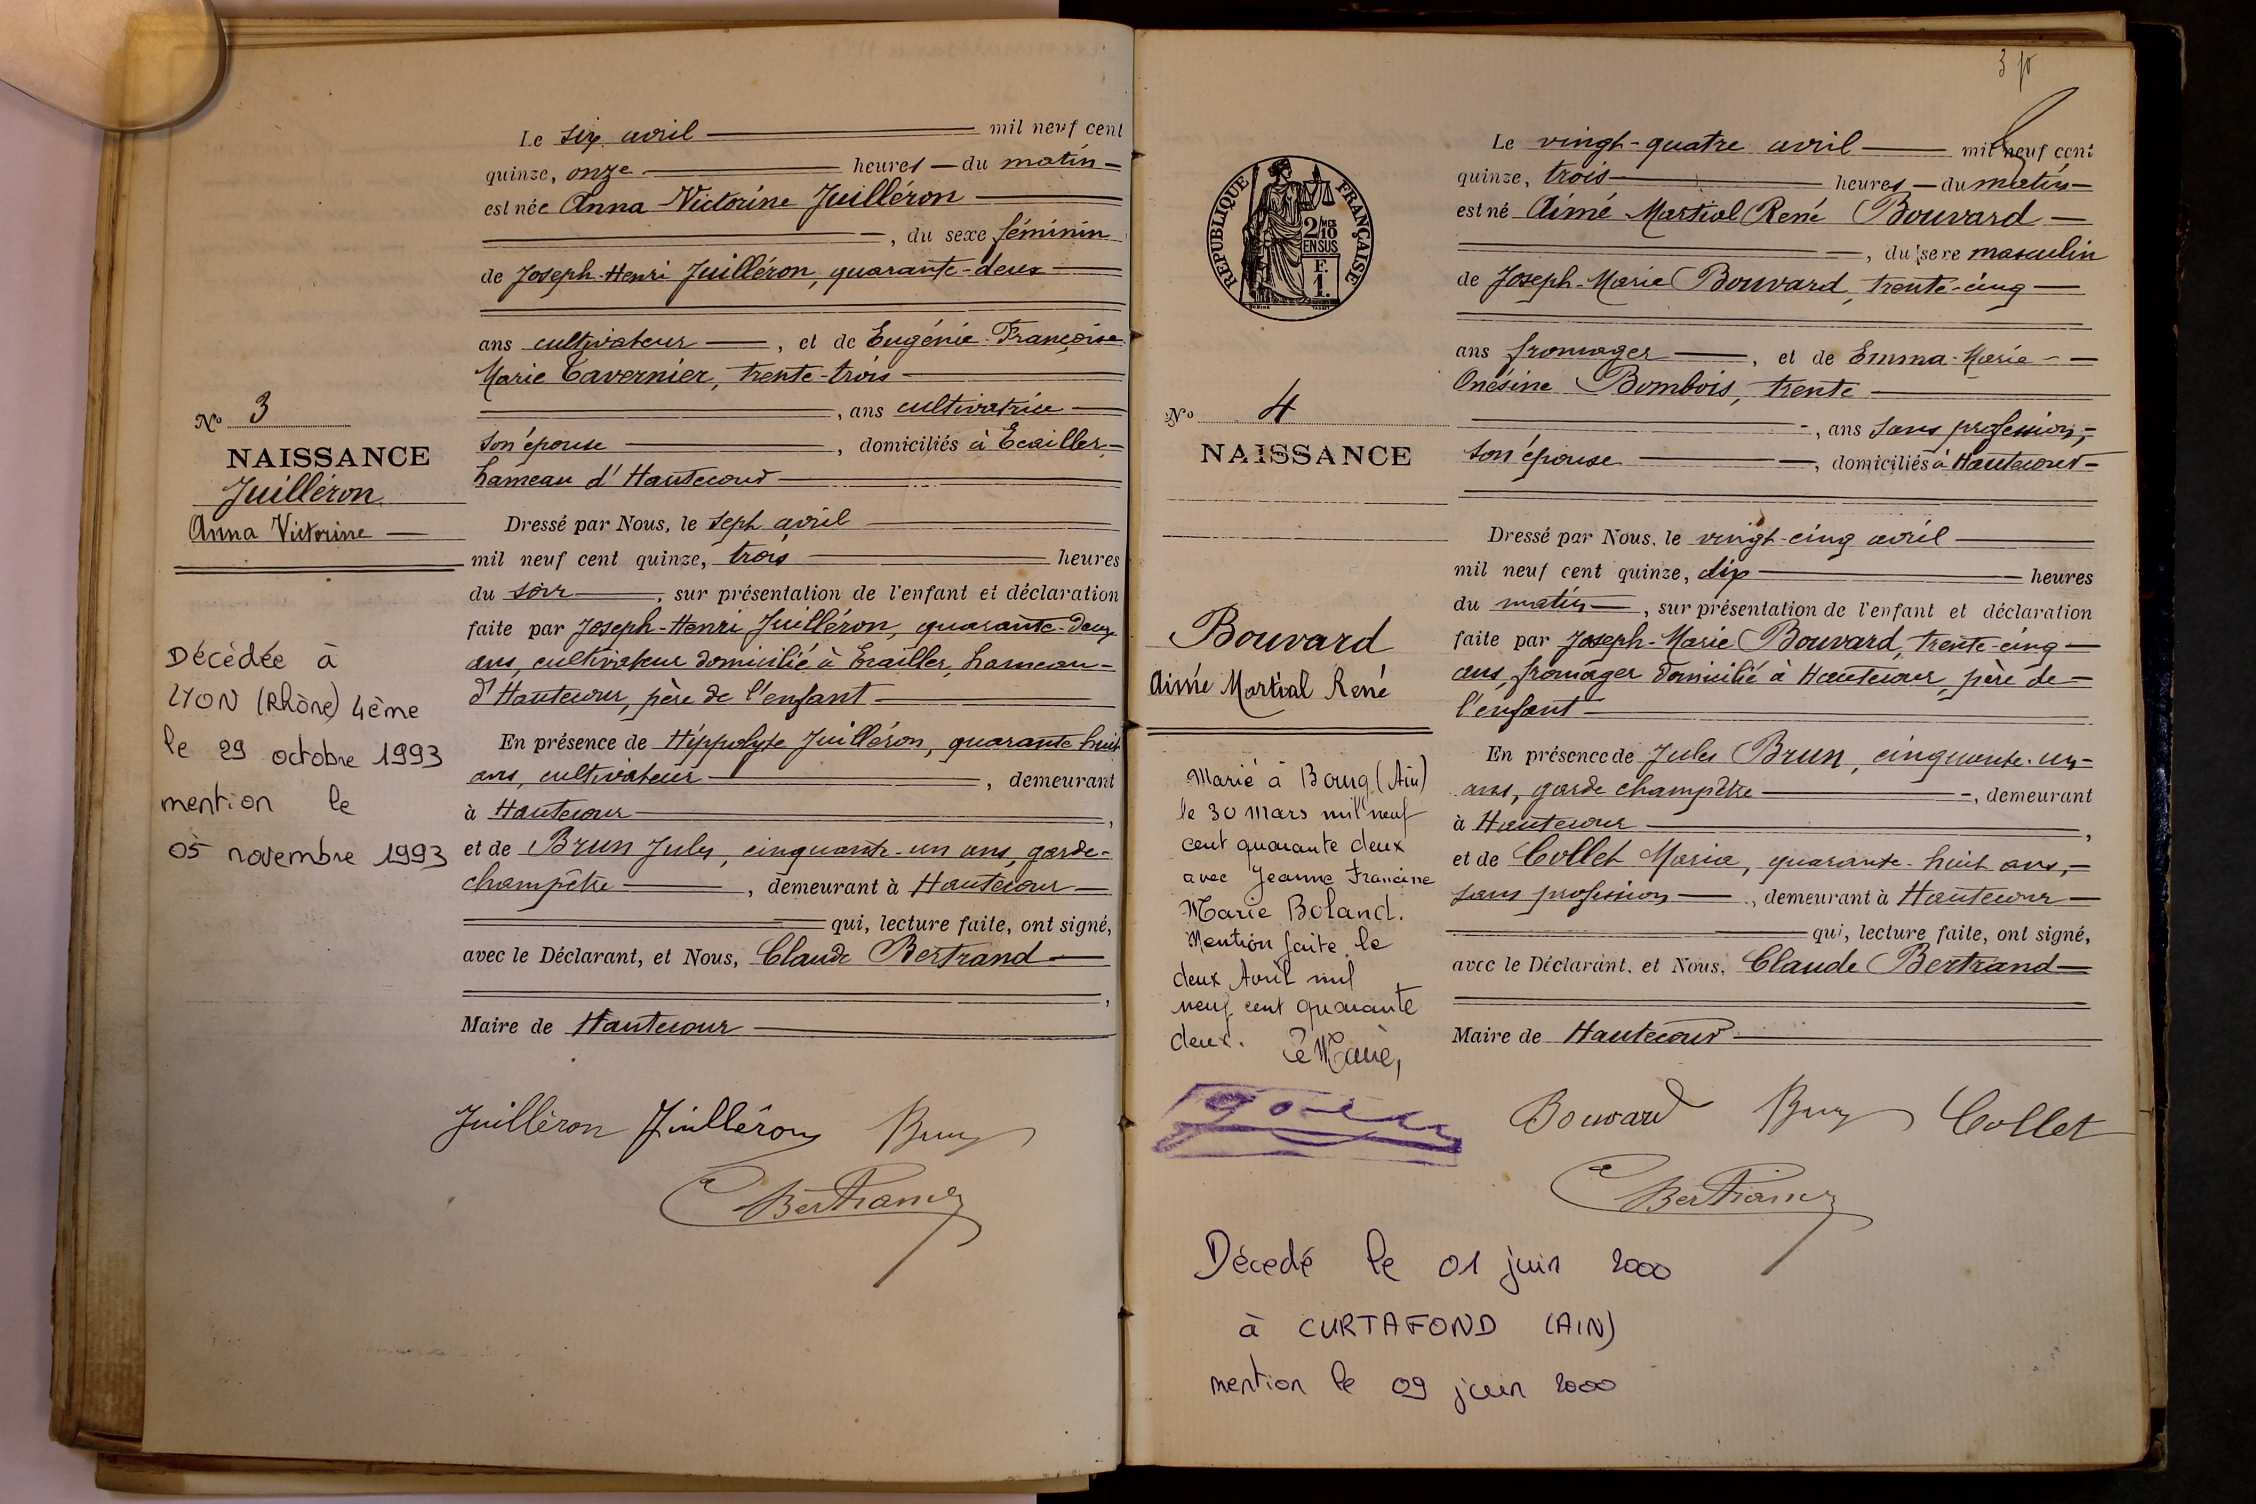 Le six avril mil neuf cent
quinze, onze heures du matin
est née Anna Victorine Juilléron
, du sexe féminin
de Joseph-Henri Juilléron, quarante-deux
ans cultivateur , et de Eugénie-Françoise
Marie Tavernier, trente-trois
, ans cultivatrice
son épouse , domiciliés à Ecailler,
hameau d'Hautecour
No 3
NAISSANCE
Juilléron
Anna Victorine
Dressé par Nous, le sept avril
mil neuf cent quinze, trois heures
du soir , sur présentation de l'enfant et déclaration
faite par Joseph-Henri Juilléron, quarante-deux
ans, cultivateur domicilié à Ecailler, hameau
d'Hautecour, père de l'enfant
En présence de Hippolyte Juilléron, quarante huit
ans, cultivateur , demeurant
à Hautecour ,
et de Brun Jules, cinquante-un ans, garde-
champêtre , demeurant à Hautecour
qui, lecture faite, ont signé,
avec le Déclarant, et Nous, Claude Bertrand
,
Maire de Hautecour
Décédée à
LYON (Rhône) 4ème
le 29 octobre 1993
mention le
05 novembre 1993
Juilléron Juilléron Brun
C Bertrand
3
Le vingt-quatre avril mil neuf cent
quinze, trois heures du matin
est né Aimé Martial René Bouvard
, du sexe masculin
de Joseph-Marie Bouvard, trente-cinq
ans fromager , et de Emma-Marie-
Onésine Bombois, trente
, ans sans profession,
son épouse , domiciliés à Hautecour
RÉPUBLIQUE FRANÇAISE
2/10
EN SUS
F.
1.
No 4
NAISSANCE
Bouvard
Aimé Martial René
Dressé par Nous, le vingt-cinq avril
mil neuf cent quinze, dix heures
du matin , sur présentation de l'enfant et déclaration
faite par Joseph-Marie Bouvard, trente-cinq
ans, fromager domicilié à Hautecour, père de
l'enfant
En présence de Jules Brun, cinquante-un
ans, garde champêtre , demeurant
à Hautecour ,
et de Collet Maria, quarante-huit ans,
sans profession , demeurant à Hautecour
qui, lecture faite, ont signé,
avec le Déclarant, et Nous, Claude Bertrand
Maire de Hautecour
Marié à Bourg (Ain)
le 30 Mars mil neuf
cent quarante deux
avec Jeanne Francine
Marie Boland.
Mention faite le
deux Avril mil
neuf cent quarante
deux. Le Maire,
Bouvard Brun Collet
C Bertrand
Décedé le 01 juin 2000
à CURTAFOND (AIN)
mention le 09 juin 2000